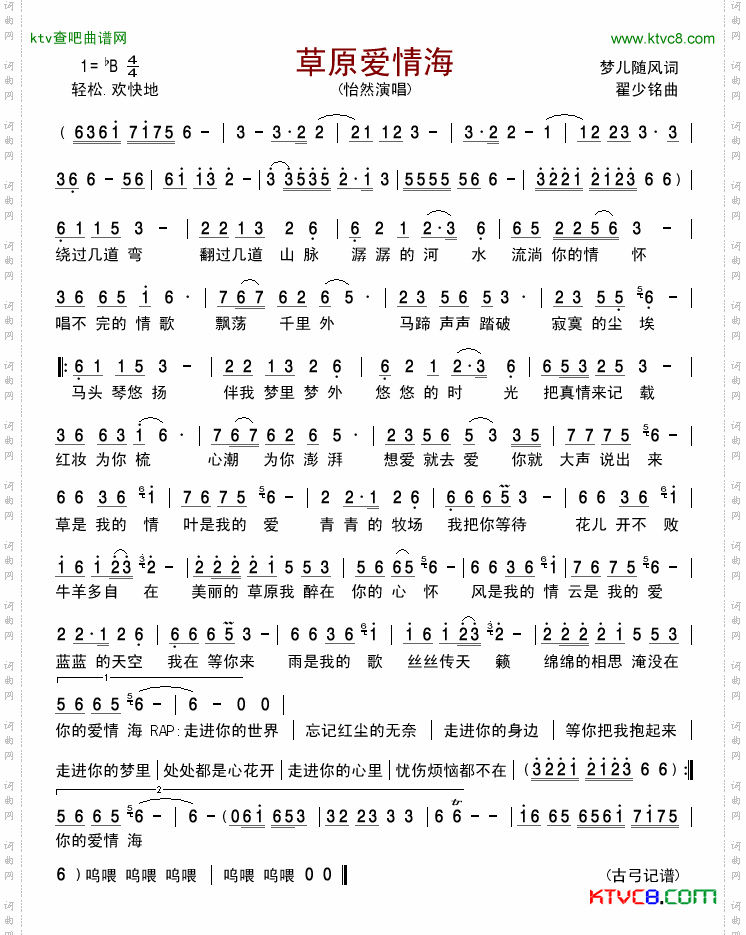 ktv查吧曲谱网
www.ktvc8.com
1= ♭B 4/4
草原爱情海
梦儿随风词
轻松.欢快地
(怡然演唱)
翟少铭曲
( 6361 7175 6 - | 3 - 3·2 2 | 21 12 3 - | 3·2 2 - 1 | 12 23 3· 3 |
36 6 - 56 | 61 13 2 - | 3 3535 2·1 3 | 5555 56 6 - | 3221 2123 6 6 )
61 15 3 - | 22 13 2 6 | 62 1 2·3 6 | 65 2256 3 - |
绕过几道 弯 翻过几道 山 脉 潺 潺 的 河 水 流淌 你的情 怀
36 65 1 6 · | 767 62 65 · | 23 56 23 5 | 23 55 5 6 - |
唱不 完的 情 歌 飘荡 千里 外 马蹄 声声 踏破 寂寞 的尘 埃
‖: 61 15 3 - | 22 13 2 6 | 62 1 2·3 6 | 65325 3 - |
马头 琴悠 扬 伴我 梦里 梦 外 悠 悠 的 时 光 把真情来记 载
36 63 1 6 · | 767 62 65 · | 2356 5 3 35 | 77 75 5 6 - |
红妆 为你 梳 心潮 为你 澎 湃 想爱 就去 爱 你就 大声 说出 来
66 36 6 1 | 76 75 6 - | 2 2·1 26 | 66 65 3 - | 66 36 6 1 |
草是 我的 情 叶是我的 爱 青 青 的 牧场 我把你等待 花儿 开不 败
16 123 3 2 - | 22 221 5 53 | 56 65 6 - | 66 36 6 1 | 76 75 6 - |
牛羊多自 在 美丽的 草原我 醉在 你的 心 怀 风是我的 情 云是 我的 爱
2 2·1 26 | 66 65 3 - | 66 36 6 1 | 16 123 3 2 - | 22 221 5 53 |
蓝蓝 的天空 我在 等你来 雨是我的 歌 丝丝传天 籁 绵绵的相思 淹没在
1
56 65 5 6 - | 6 - 0 0 |
你的爱情 海 RAP:走进你的世界 | 忘记红尘的无奈 | 走进你的身边 | 等你把我抱起来 |
走进你的梦里 | 处处都是心花开 | 走进你的心里 | 忧伤烦恼都不在 | (3221 2123 6 6) :‖
2
56 65 5 6 - | 6 - (061 653 | 32 23 3 - | 6 6 tr - - | 16 65 6561 7175 |
你的爱情 海
6 ) 呜喂 呜喂 呜喂 | 呜喂 呜喂 呜喂 0 0 ‖
(古弓记谱)
KTVC8.COM
词曲网